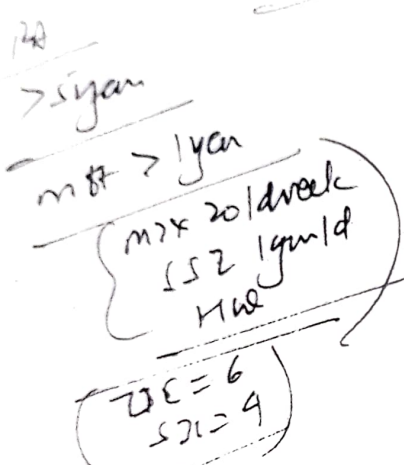 RA
>5 year
m8t > 1 year
MTX 20/week
SSZ 1gm/d
HCQ
TJC = 6
SJC = 4